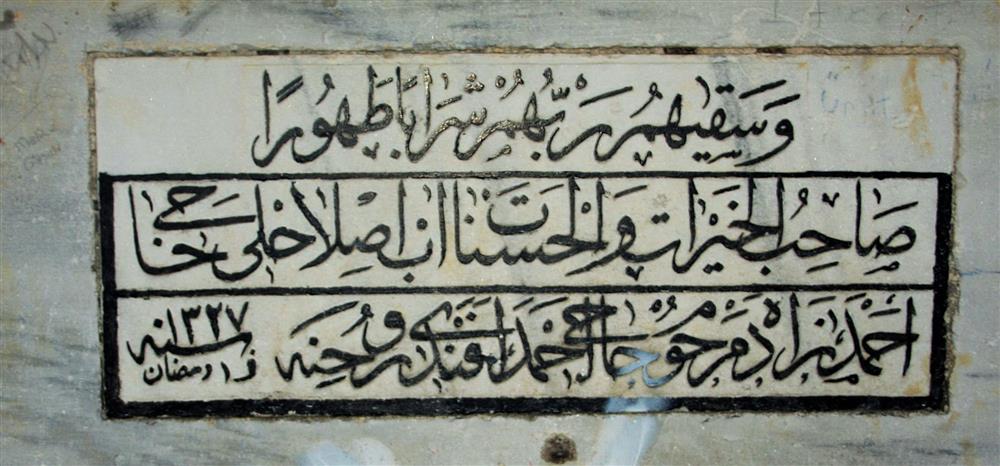 وسقيهم ربهم شرابا طهورا
صاحب الخيرات والحسنات اب اصلاخلى حاجى
احمد زاده مرحوم حاجى احمد افندى روحنه
سنه ١٣٢٧
فى ١ رمضان